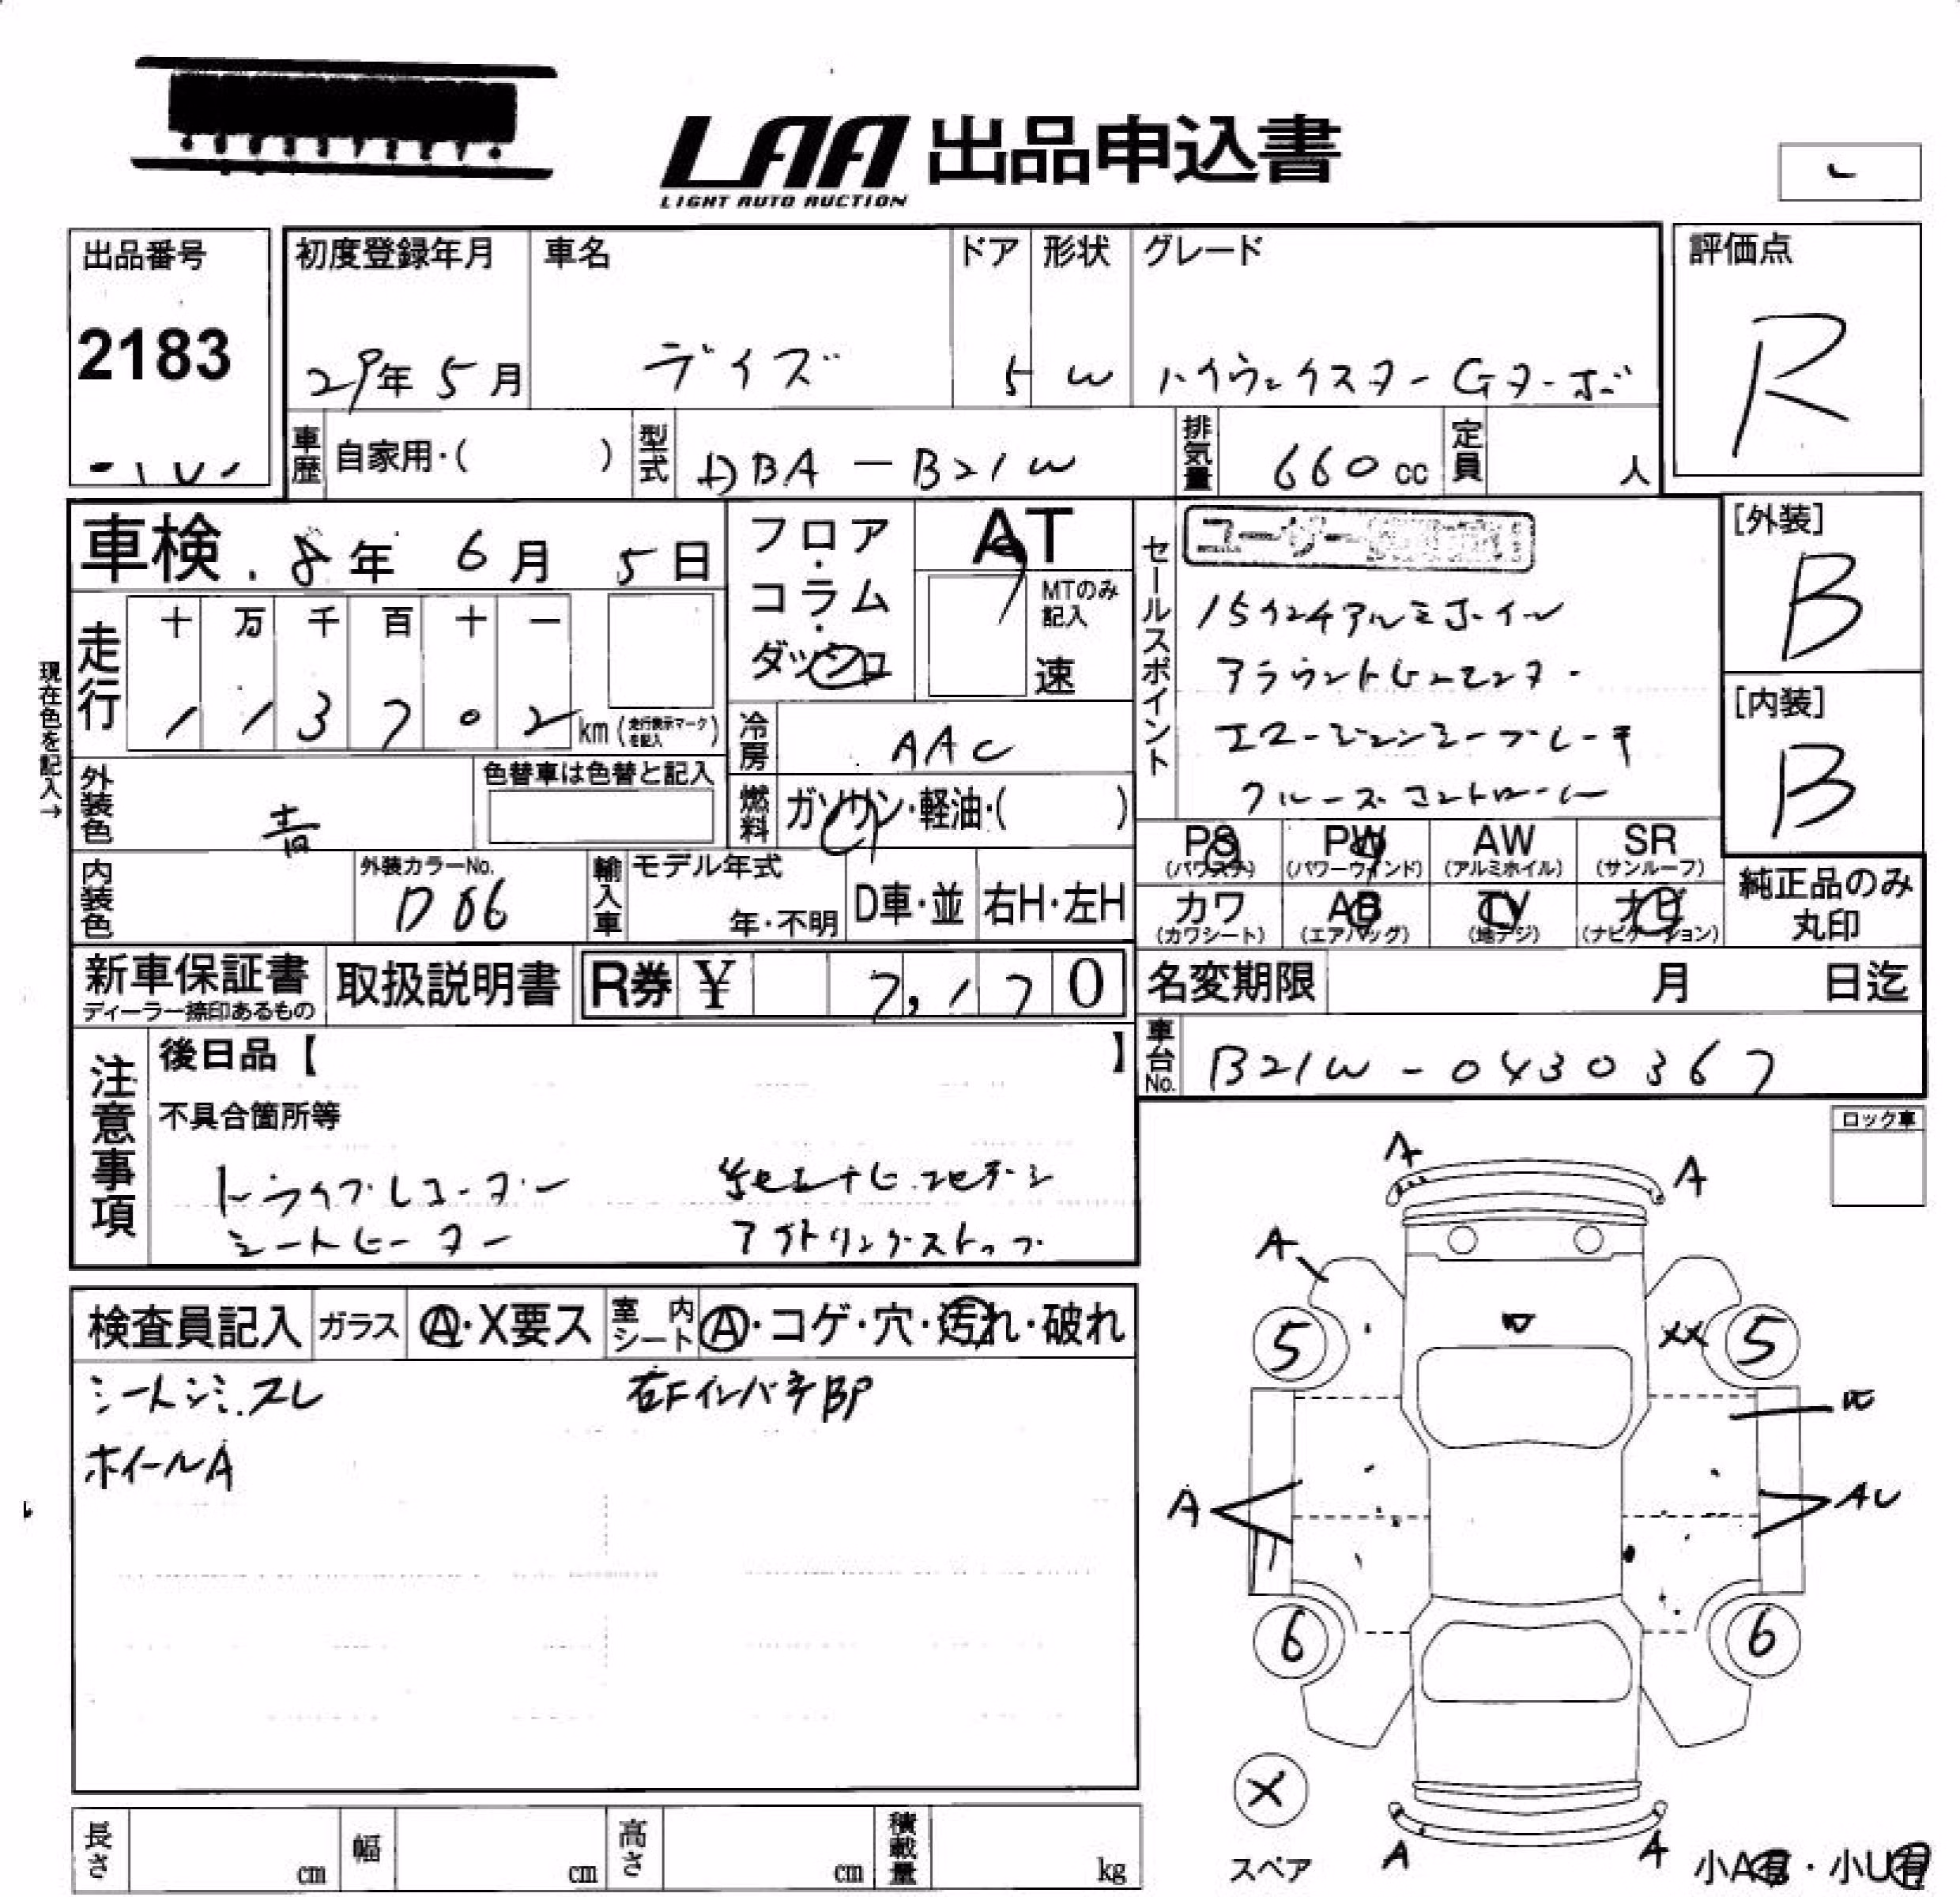 LAA 出品申込書
LIGHT AUTO AUCTION
出品番号
2183
初度登録年月
29年 5月
車名
デイズ
ドア
5
形状
W
グレード
ハイウェイスター Gターボ
評価点
R
車歴
自家用・( )
型式
DBA - B21W
排気量
660 cc
定員
人
車検
8年 6月 5日
フロア・コラム・ダッシュ
AT
MTのみ記入
速
セールスポイント
ユーザー
15インチアルミホイール
アラウンドビューモニター
エマージェンシーブレーキ
クルーズコントロール
[外装]
B
[内装]
B
現在色を記入→
走行
十 万 千 百 十 一
1 1 3 7 0 2 km (走行表示マークを記入)
冷房
AAC
外装色
青
色替車は色替と記入
燃料
ガソリン・軽油・( )
PS (パワステ)
PW (パワーウィンド)
AW (アルミホイル)
SR (サンルーフ)
カワ (カワシート)
AB (エアバッグ)
TV (地デジ)
ナビ (ナビゲーション)
純正品のみ丸印
内装色
外装カラーNo.
輸入車
モデル年式
年・不明
D車・並
右H・左H
新車保証書
ディーラー捺印あるもの
取扱説明書
R券 ¥ 7,170
名変期限
月 日迄
車台No.
B21W - 0430367
注意事項
後日品【 】
不具合箇所等
ドライブレコーダー
シートヒーター
アイドリングストップ
ロック車
検査員記入
ガラス
A・X要ス
室内シート
A・コゲ・穴・汚れ・破れ
シートシミ.スレ
右FインパネBP
ホイールA
A
A
A
5
XX
5
A
AU
6
6
X
スペア
A
A
小A有・小U有
長さ
cm
幅
cm
高さ
cm
積載量
kg